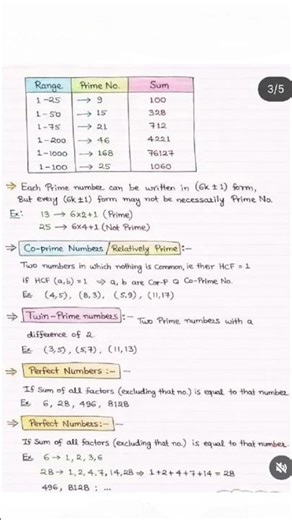 3/5
Range Prime No. Sum
1-25 → 9 100
1-50 → 15 328
1-75 → 21 712
1-200 → 46 4221
1-1000 → 168 76127
1-100 → 25 1060
⇒ Each Prime number can be written in (6k ± 1) form,
But every (6k ± 1) form may not be necessarily Prime No.
Ex: 13 → 6x2+1 (Prime)
25 → 6x4+1 (Not Prime)
⇒ Co-prime Numbers / Relatively Prime :-
Two numbers in which nothing is Common, ie their HCF = 1
if HCF (a,b) = 1 ⇒ a, b are Co-Prime No.
Ex. (4,5), (8,3), (5,9), (11,17)
⇒ Twin-Prime numbers :- Two Prime numbers with a
difference of 2
Ex. (3,5), (5,7), (11,13)
⇒ Perfect Numbers :-
If Sum of all factors (excluding that no.) is equal to that number
Ex. 6, 28, 496, 8128
⇒ Perfect Numbers :-
If Sum of all factors (excluding that no.) is equal to that number.
Ex 6 → 1, 2, 3, 6
28 → 1, 2, 4, 7, 14, 28 ⇒ 1+2+4+7+14 = 28
496, 8128 ; ...